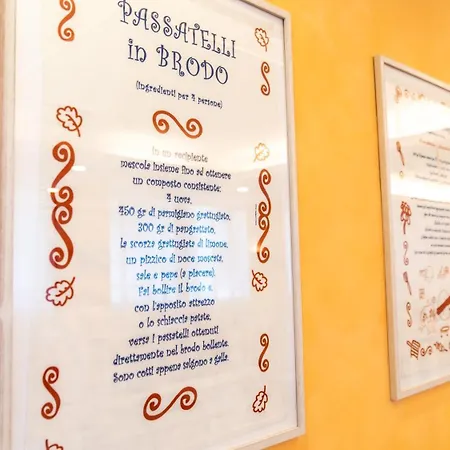 PASSATELLI
in BRODO
(ingredienti per 4 persone)
in un recipiente
mescola insieme fino ad ottenere
un composto consistente:
4 uova,
450 gr di parmigiano grattugiato,
300 gr di pangrattato,
la scorza grattugiata di limone,
un pizzico di noce moscata,
sale e pepe (a piacere).
Fai bollire il brodo e,
con l'apposito attrezzo
o lo schiaccia patate,
versa i passatelli ottenuti
direttamente nel brodo bollente.
Sono cotti appena salgono a galla.